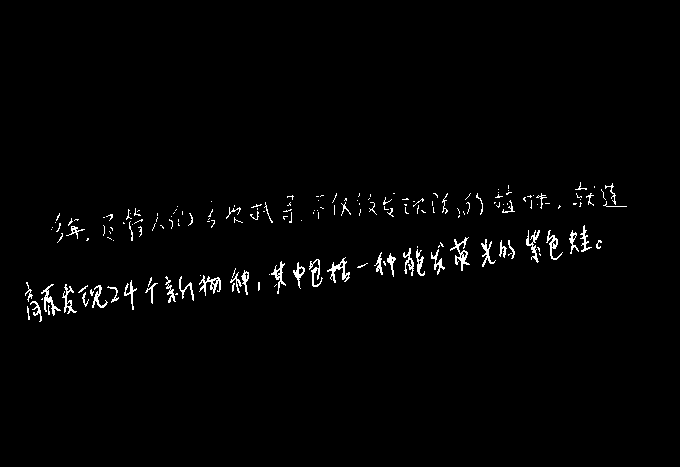 多年,尽管人们多次找寻,不仅没发现活的植株,就连
高原发现24个新物种,其中包括一种能发荧光的紫色蛙。